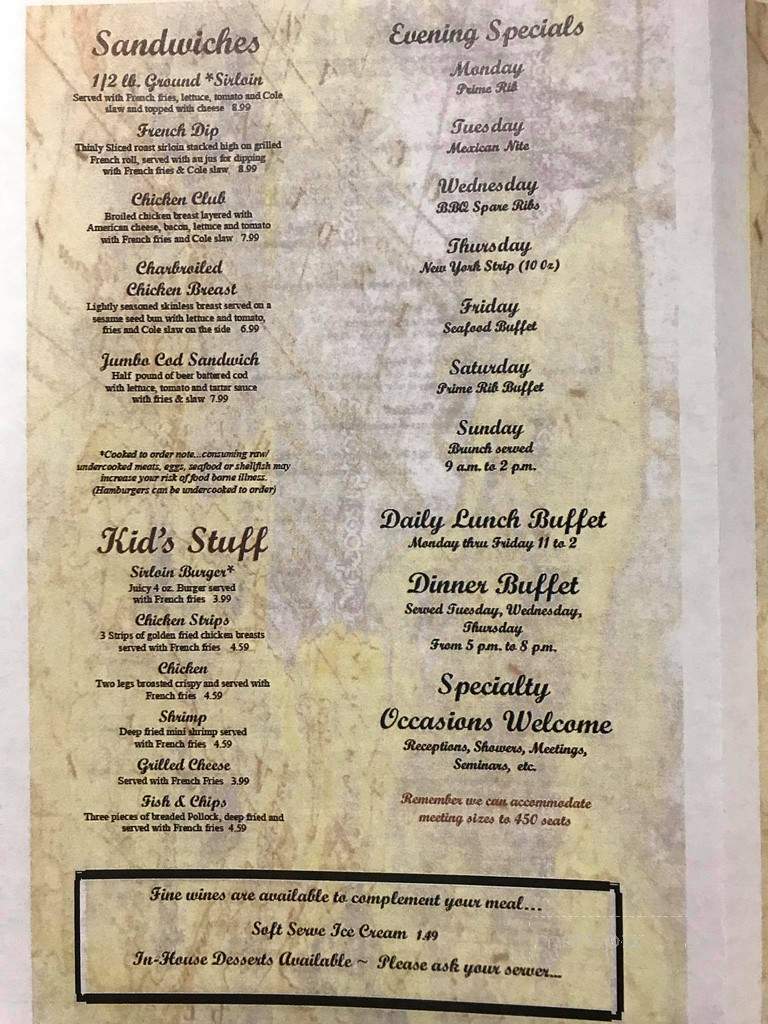 Sandwiches
1/2 lb. Ground *Sirloin
Served with French fries, lettuce, tomato and Cole
slaw and topped with cheese 8.99
French Dip
Thinly Sliced roast sirloin stacked high on grilled
French roll, served with au jus for dipping
with French fries & Cole slaw 8.99
Chicken Club
Broiled chicken breast layered with
American cheese, bacon, lettuce and tomato
with French fries and Cole slaw 7.99
Charbroiled
Chicken Breast
Lightly seasoned skinless breast served on a
sesame seed bun with lettuce and tomato,
fries and Cole slaw on the side 6.99
Jumbo Cod Sandwich
Half pound of beer battered cod
with lettuce, tomato and tartar sauce
with fries & slaw 7.99
*Cooked to order note...consuming raw/
undercooked meats, eggs, seafood or shellfish may
increase your risk of food borne illness.
(Hamburgers can be undercooked to order)
Kid's Stuff
Sirloin Burger*
Juicy 4 oz. Burger served
with French fries 3.99
Chicken Strips
3 Strips of golden fried chicken breasts
served with French fries 4.59
Chicken
Two legs broasted crispy and served with
French fries 4.59
Shrimp
Deep fried mini shrimp served
with French fries 4.59
Grilled Cheese
Served with French Fries 3.99
Fish & Chips
Three pieces of breaded Pollock, deep fried and
served with French fries 4.59
Evening Specials
Monday
Prime Rib
Tuesday
Mexican Nite
Wednesday
BBQ Spare Ribs
Thursday
New York Strip (10 Oz)
Friday
Seafood Buffet
Saturday
Prime Rib Buffet
Sunday
Brunch served
9 a.m. to 2 p.m.
Daily Lunch Buffet
Monday thru Friday 11 to 2
Dinner Buffet
Served Tuesday, Wednesday,
Thursday
From 5 p.m. to 8 p.m.
Specialty
Occasions Welcome
Receptions, Showers, Meetings,
Seminars, etc.
Remember we can accommodate
meeting sizes to 450 seats
Fine wines are available to complement your meal...
Soft Serve Ice Cream 1.49
In-House Desserts Available ~ Please ask your server...